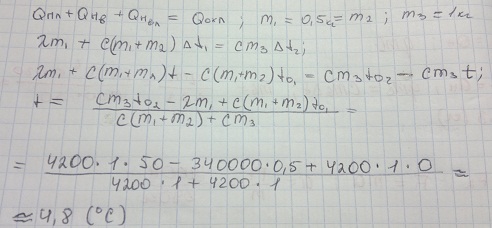 Qнл + Qнв + Qнвл = Qохл ; m₁ = 0,5кг = m₂ ; m₃ = 1кг
λm₁ + c(m₁+m₂) Δt₁ = cm₃ Δt₂;
λm₁ + c(m₁+m₂)t − c(m₁+m₂)t₀₁ = cm₃t₀₂ − cm₃t;
t = (cm₃t₀₂ − λm₁ + c(m₁+m₂)t₀₁) / (c(m₁+m₂) + cm₃) =
= (4200·1·50 − 340000·0,5 + 4200·1·0) / (4200·1 + 4200·1) ≈
≈ 4,8 (°C)